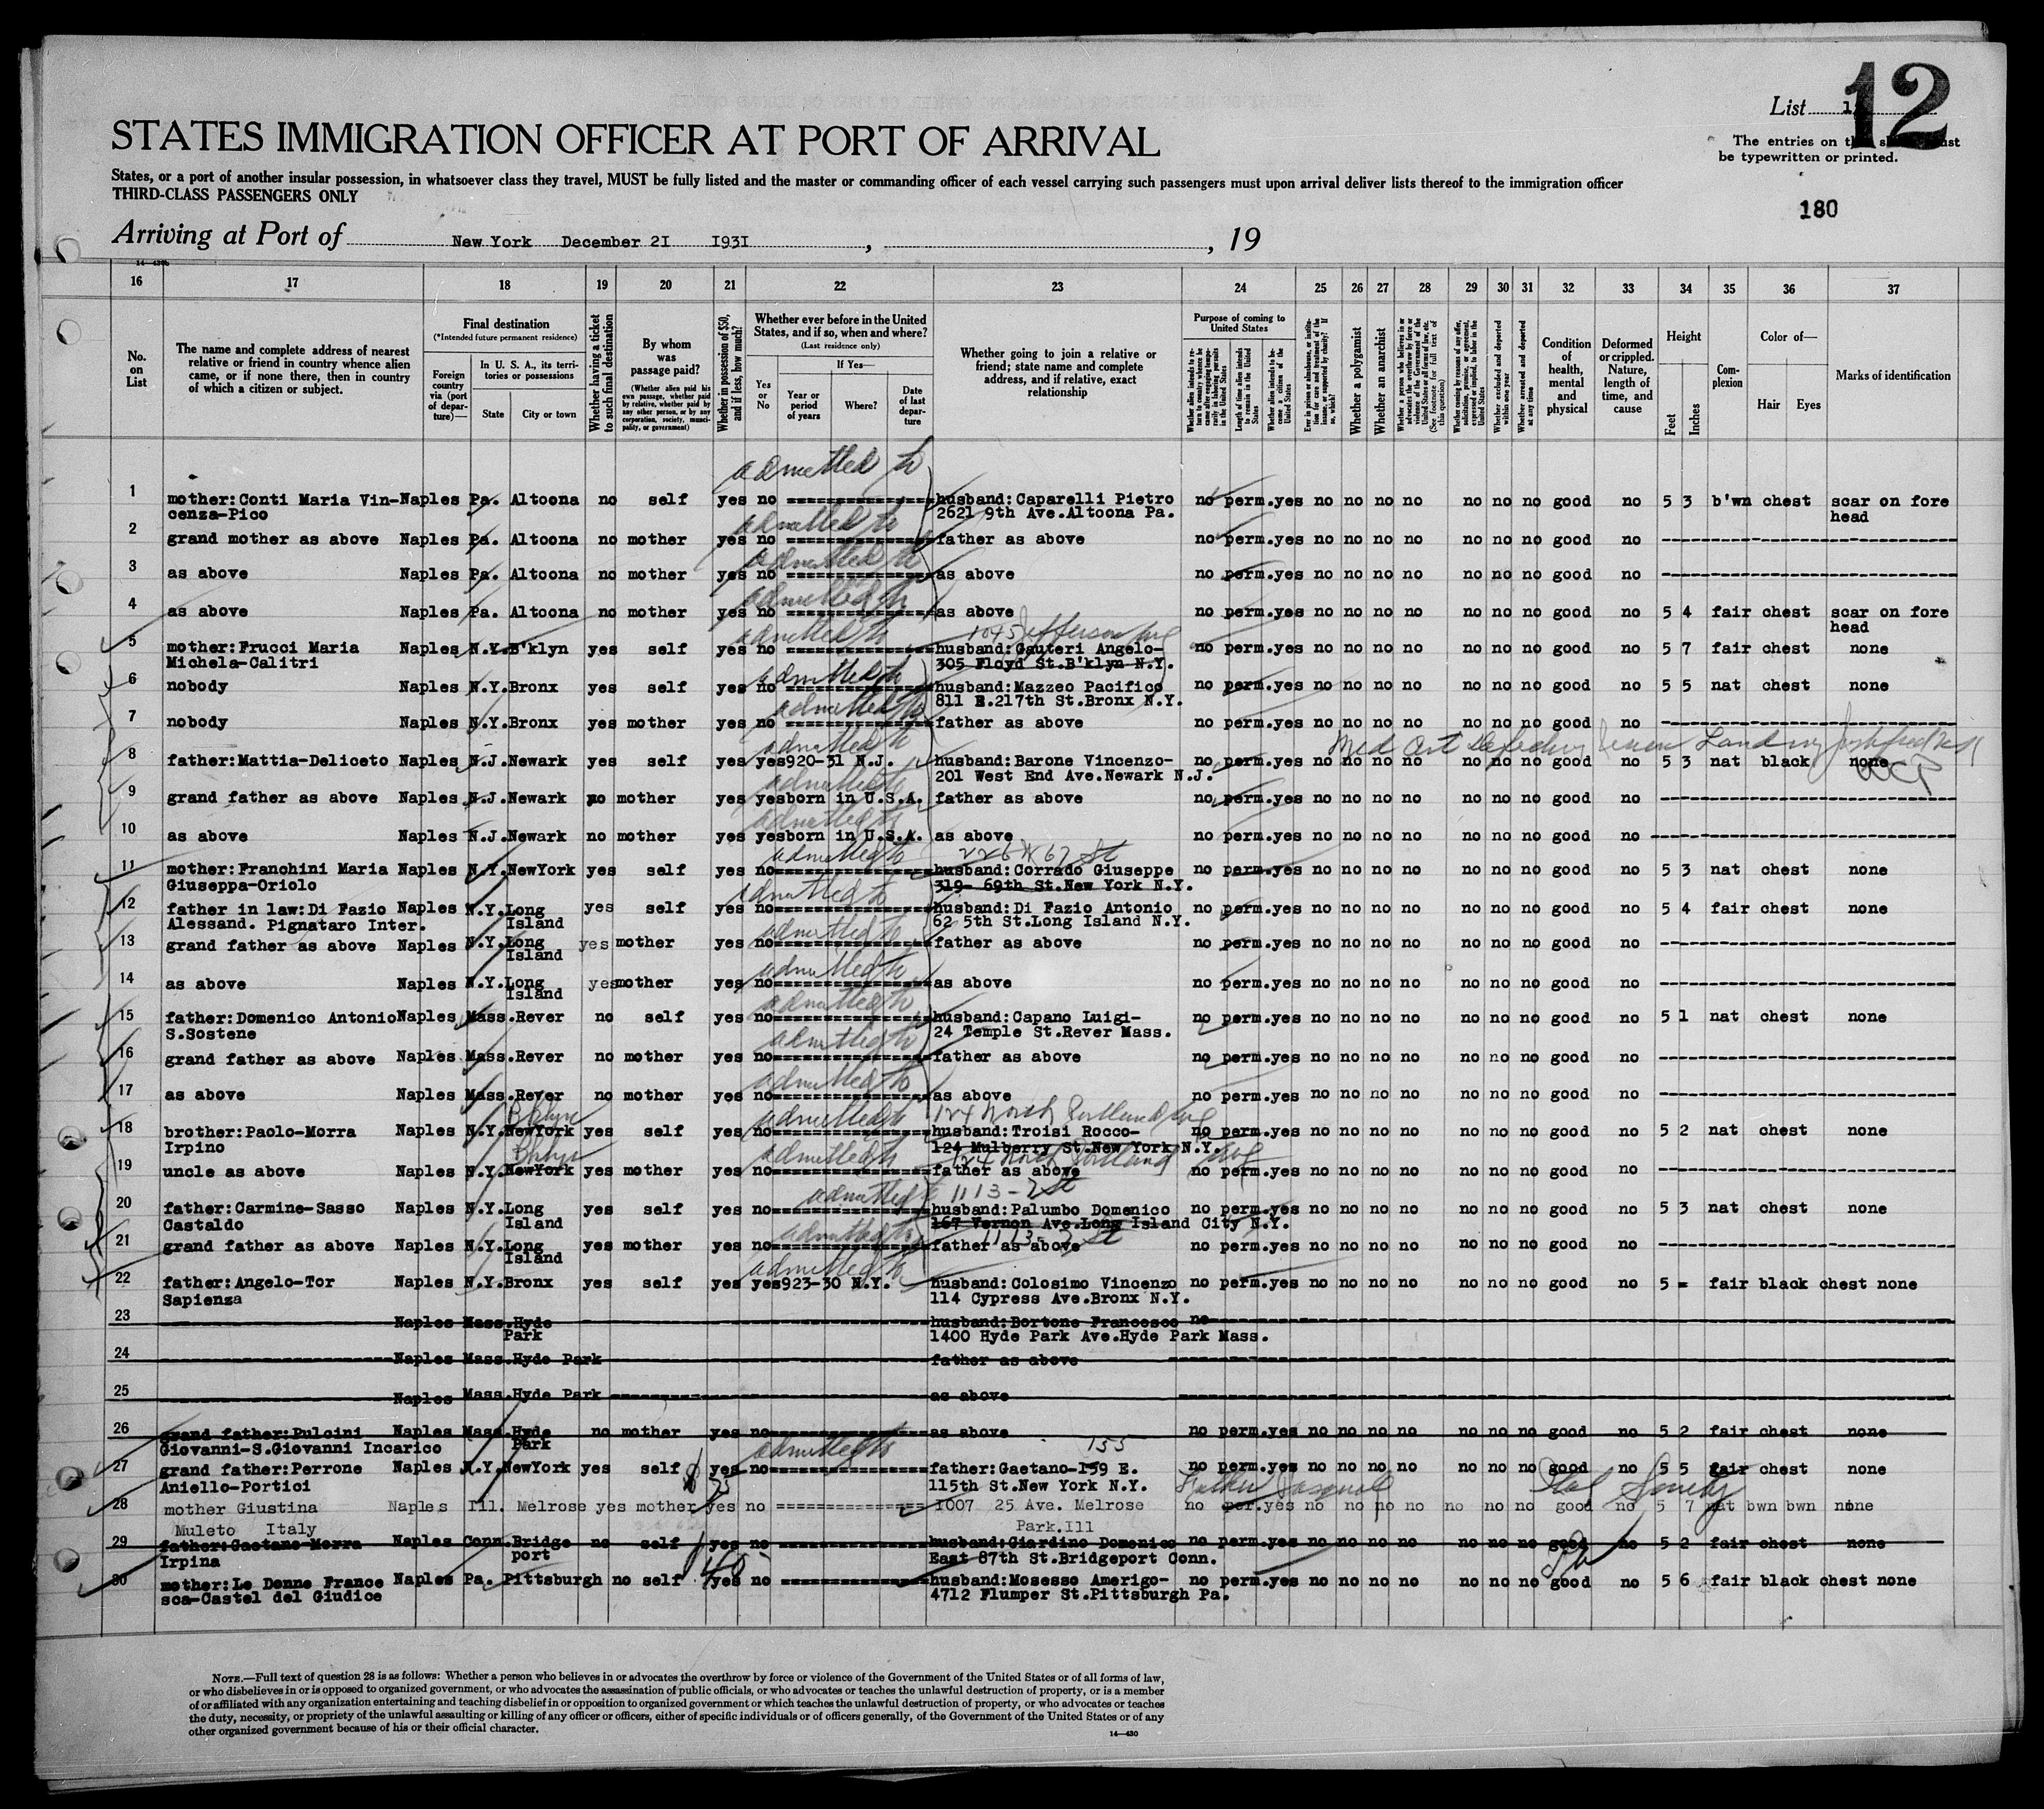 12
List
The entries on
be typewritten or printed.
STATES IMMIGRATION OFFICER AT PORT OF ARRIVAL
States, or a port of another insular possession, in whatsoever class they travel, MUST be fully listed and the master or commanding officer of each vessel carrying such passengers must upon arrival deliver lists thereof to the immigration officer
THIRD-CLASS PASSENGERS ONLY
180
Arriving at Port of New York December 2I I93I , , 19
16 17 18 19 20 21 22 23 24 25 26 27 28 29 30 31 32 33 34 35 36 37
No. on List
The name and complete address of nearest relative or friend in country whence alien came, or if none there, then in country of which a citizen or subject.
Final destination
(*Intended future permanent residence)
Foreign country via (port of departure)—
In U. S. A., its territories or possessions
State
City or town
Whether having a ticket to such final destination
By whom was passage paid?
(Whether alien paid his own passage, whether paid by relative, whether paid by any other person, or by any corporation, society, municipality, or government)
Whether in possession of $50, and if less, how much?
Whether ever before in the United States, and if so, when and where?
(Last residence only)
Yes or No
If Yes—
Year or period of years
Where?
Date of last departure
Whether going to join a relative or friend; state name and complete address, and if relative, exact relationship
Purpose of coming to United States
Whether a polygamist
Whether an anarchist
Condition of health, mental and physical
Deformed or crippled. Nature, length of time, and cause
Height
Feet
Inches
Complexion
Color of—
Hair
Eyes
Marks of identification
admitted to
1 mother:Conti Maria Vin- Naples Pa. Altoona no self yes no husband:Caparelli Pietro no perm.yes no no no no no no no good no 5 3 b'wn chest scar on fore
cenza-Pico 2621 9th Ave.Altoona Pa. head
admitted to
2 grand mother as above Naples Pa. Altoona no mother yes no father as above no perm.yes no no no no no no no good no
admitted to
3 as above Naples Pa. Altoona no mother yes no as above no perm.yes no no no no no no no good no
admitted to
4 as above Naples Pa. Altoona no mother yes no as above no perm.yes no no no no no no no good no 5 4 fair chest scar on fore
head
admitted to 1045 Jefferson Ave
5 mother:Frucci Maria Naples N.Y.B'klyn yes self yes no husband:Gauteri Angelo- no perm.yes no no no no no no no good no 5 7 fair chest none
Michela-Calitri 305 Floyd St.B'klyn N.Y.
admitted to
6 nobody Naples N.Y.Bronx yes self yes no husband:Mazzeo Pacifico no perm.yes no no no no no no no good no 5 5 nat chest none
811 E.217th St.Bronx N.Y.
admitted to
7 nobody Naples N.Y.Bronx yes mother yes no father as above no perm.yes no no no no no no no good no
admitted to Med Cert
8 father:Mattia-Deliceto Naples N.J.Newark yes self yes yes920-31 N.J. husband:Barone Vincenzo- no perm.yes no no no no no no no good no 5 3 nat black none
201 West End Ave.Newark N.J.
admitted to
9 grand father as above Naples N.J.Newark no mother yes yesborn in U.S.A. father as above no perm.yes no no no no no no no good no
admitted to
10 as above Naples N.J.Newark no mother yes yesborn in U.S.A. as above no perm.yes no no no no no no no good no
admitted to 226 W 67 St
11 mother:Franchini Maria Naples N.Y.NewYork yes self yes no husband:Corrado Giuseppe no perm.yes no no no no no no no good no 5 3 nat chest none
Giuseppa-Oriolo 319- 69th St.New York N.Y.
admitted to
12 father in law:Di Fazio Naples N.Y.Long yes self yes no husband:Di Fazio Antonio no perm.yes no no no no no no no good no 5 4 fair chest none
Alessand. Pignataro Inter. Island 62 5th St.Long Island N.Y.
admitted to
13 grand father as above Naples N.Y.Long yes mother yes no father as above no perm.yes no no no no no no no good no
Island
admitted to
14 as above Naples N.Y.Long yesmother yes no as above no perm.yes no no no no no no no good no
Island
admitted to
15 father:Domenico Antonio Naples Mass.Rever no self yes no husband:Capano Luigi- no perm.yes no no no no no no no good no 5 1 nat chest none
S.Sostene 24 Temple St.Rever Mass.
admitted to
16 grand father as above Naples Mass.Rever no mother yes no father as above no perm.yes no no no no no no no good no
admitted to
17 as above Naples Mass.Rever no mother yes no as above no perm.yes no no no no no no no good no
Bklyn admitted to 124 North Portland Ave
18 brother:Paolo-Morra Naples N.Y.NewYork yes self yes no husband:Troisi Rocco- no perm.yes no no no no no no no good no 5 2 nat chest none
Irpino 124 Mulberry St.New York N.Y.
Bklyn admitted to 124 North Portland Ave
19 uncle as above Naples N.Y.NewYork yes mother yes no father as above no perm.yes no no no no no no no good no
admitted to 1113-2 St
20 father:Carmine-Sasso Naples N.Y.Long yes self yes no husband:Palumbo Domenico no perm.yes no no no no no no no good no 5 3 nat chest none
Castaldo Island 167 Vernon Ave.Long Island City N.Y.
admitted to 1113-2 St
21 grand father as above Naples N.Y.Long yes mother yes no father as above no perm.yes no no no no no no no good no
Island
admitted to
22 father:Angelo-Tor Naples N.Y.Bronx yes self yes yes923-30 N.Y. husband:Colosimo Vincenzo no perm.yes no no no no no no no good no 5 - fair black chest none
Sapienza 114 Cypress Ave.Bronx N.Y.
23 Naples Mass.Hyde husband:Bortone Francesco no
Park 1400 Hyde Park Ave.Hyde Park Mass.
24 Naples Mass.Hyde Park father as above
25 Naples Mass.Hyde Park as above
26 grand father:Pulcini Naples Mass.Hyde no mother yes no as above no perm.yes no no no no no no no good no 5 2 fair chest none
Giovanni-S.Giovanni Incarico Park
admitted to 155
27 grand father:Perrone Naples N.Y.NewYork yes self yes no father:Gaetano-159 E. no perm.yes no no no no no no no good no 5 5 fair chest none
Aniello-Portici 25 115th St.New York N.Y. Father Pasquale
28 mother Giustina Naples Ill. Melrose yes mother yes no 1007 25 Ave. Melrose no per.yes no no no no no no no good no 5 7 nat bwn bwn none
Muleto Italy Park.Ill
29 father:Gaetano-Morra Naples Conn.Bridge no self yes no husband:Giardino Domenico no perm.yes no no no no no no no good no 5 2 fair chest none
Irpina port East 87th St.Bridgeport Conn.
40
30 mother:Le Donne France Naples Pa. Pittsburgh no self yes no husband:Mosesso Amerigo- no perm.yes no no no no no no no good no 5 6 fair black chest none
sca-Castel del Giudice 4712 Flumper St.Pittsburgh Pa.
NOTE.—Full text of question 28 is as follows: Whether a person who believes in or advocates the overthrow by force or violence of the Government of the United States or of all forms of law,
or who disbelieves in or is opposed to organized government, or who advocates the assassination of public officials, or who advocates or teaches the unlawful destruction of property, or is a member
of or affiliated with any organization entertaining and teaching disbelief in or opposition to organized government or which teaches the unlawful destruction of property, or who advocates or teaches
the duty, necessity, or propriety of the unlawful assaulting or killing of any officer or officers, either of specific individuals or of officers generally, of the Government of the United States or of any
other organized government because of his or their official character.
14—430